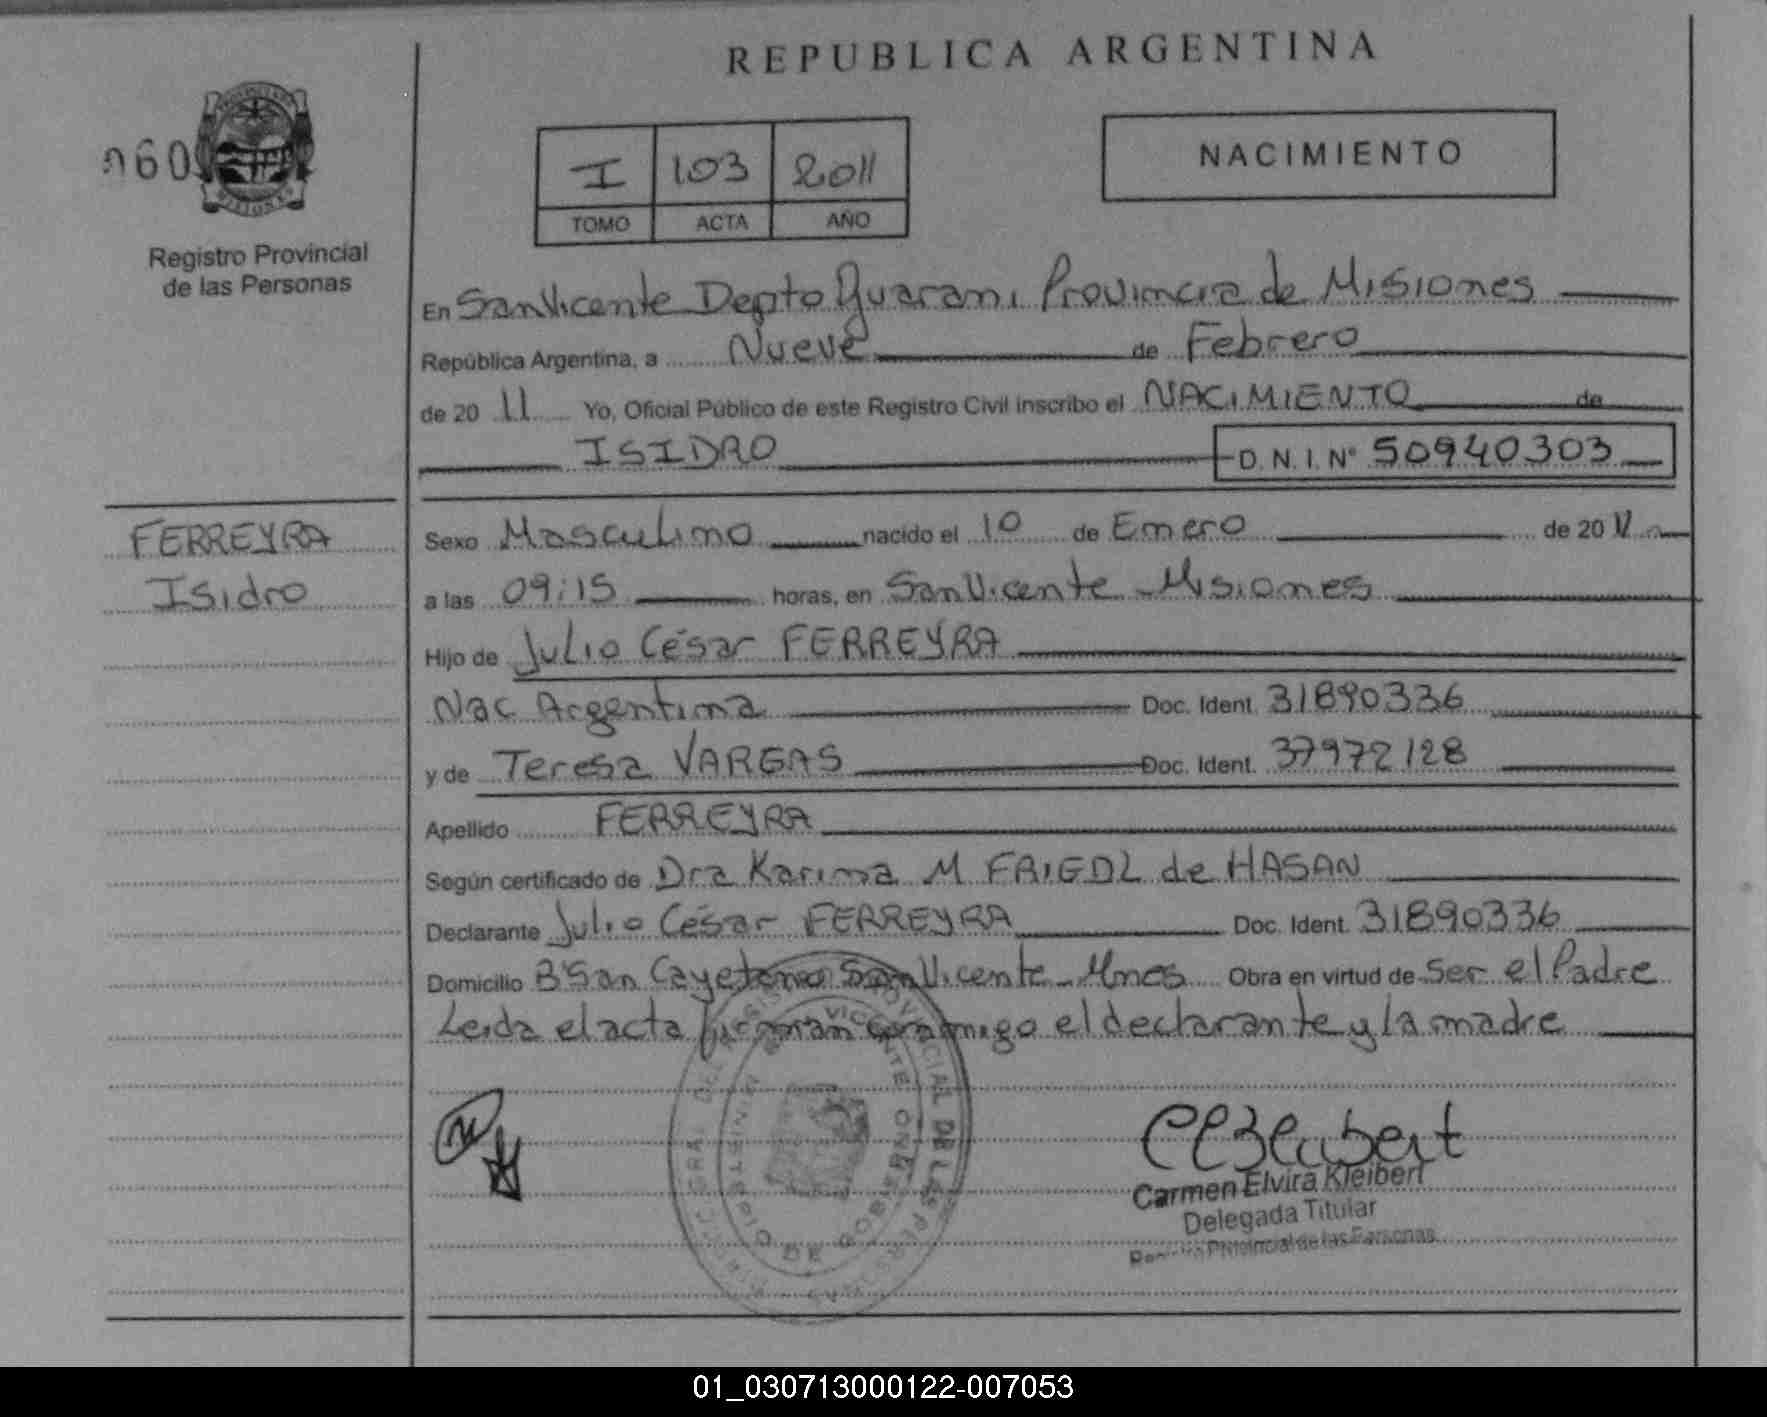 REPUBLICA ARGENTINA
060
Registro Provincial
de las Personas
I 103 2011
TOMO ACTA AÑO
NACIMIENTO
En San Vicente Depto Guarani Provincia de Misiones
República Argentina, a Nueve de Febrero
de 20 11 Yo, Oficial Público de este Registro Civil inscribo el NACIMIENTO de
ISIDRO D.N.I. Nº 50940303
FERREYRA
Isidro
Sexo Masculino nacido el 10 de Enero de 20 11
a las 09:15 horas, en San Vicente - Misiones
Hijo de Julio César FERREYRA
Nac Argentina Doc. Ident. 31890336
y de Teresa VARGAS Doc. Ident. 37972128
Apellido FERREYRA
Según certificado de Dra Karina M FRIEDL de HASAN
Declarante Julio César FERREYRA Doc. Ident. 31890336
Domicilio Bº San Cayetano San Vicente - Mnes Obra en virtud de Ser el Padre
Leida el acta firman conmigo el declarante y la madre
Carmen Elvira Kleibert
Delegada Titular
Provincial de las Personas
01_030713000122-007053